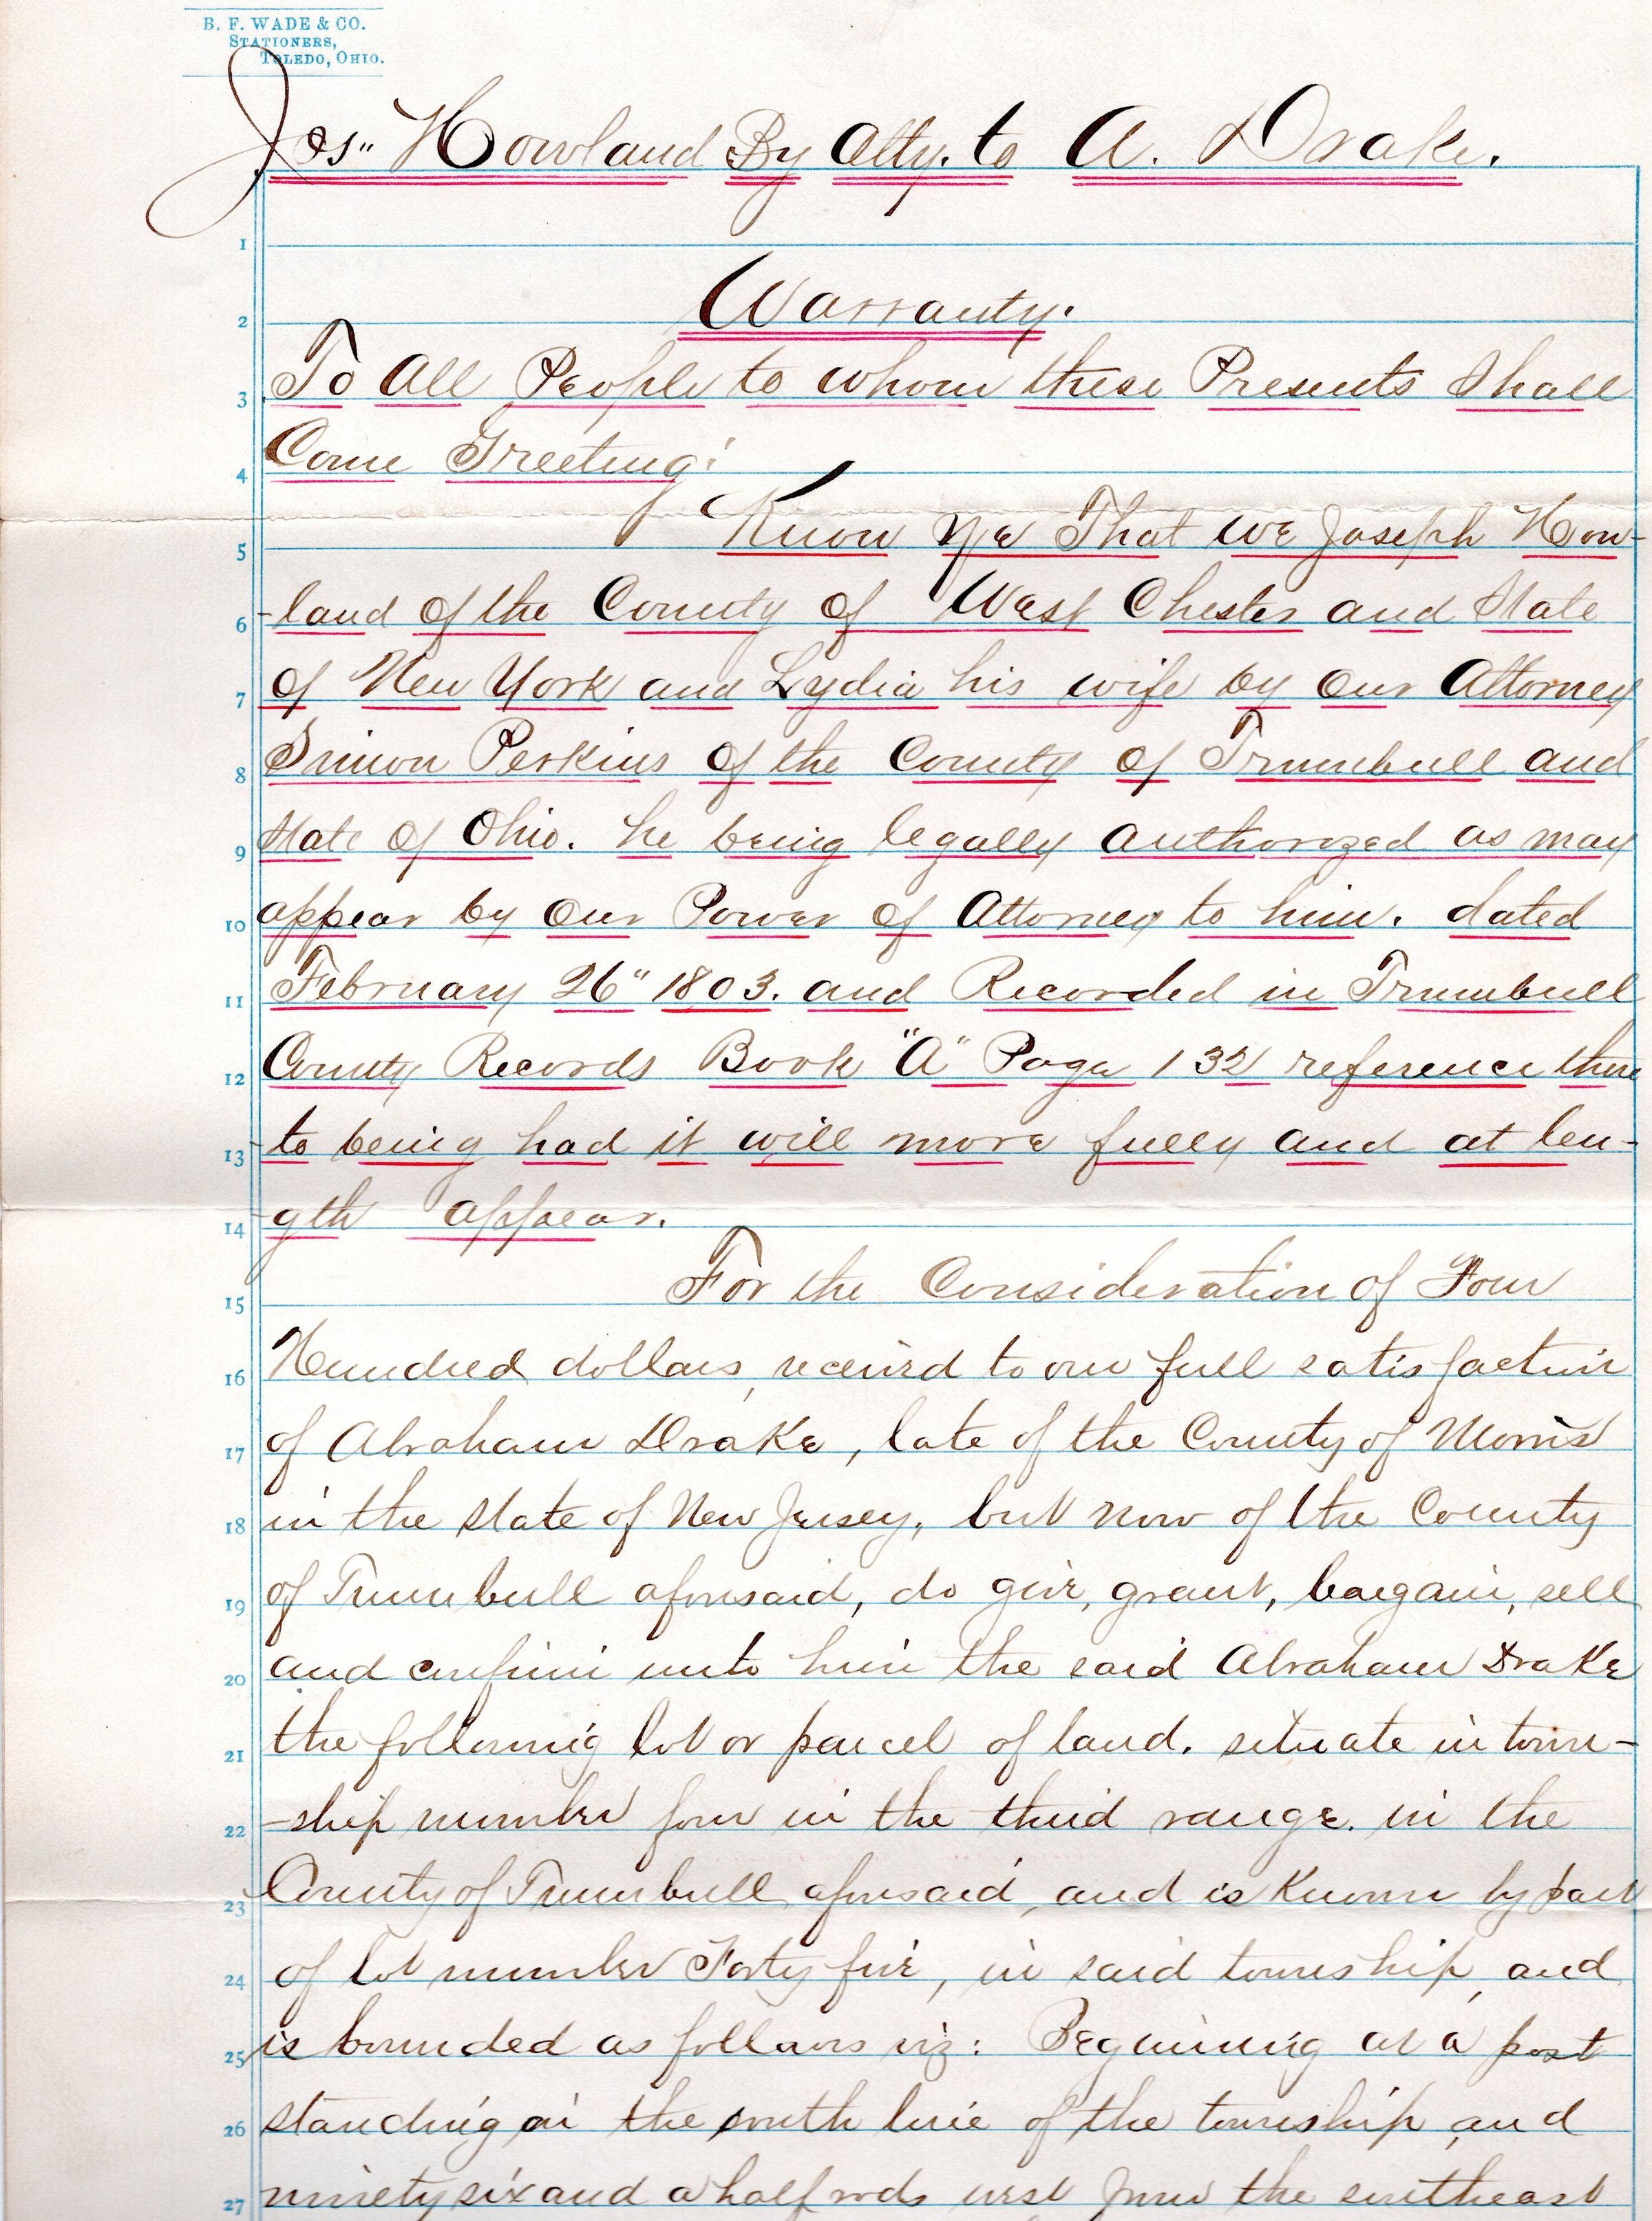 B. F. WADE & CO.
STATIONERS,
TOLEDO, OHIO.
Jos" Howland By Atty. to A. Drake.
1
2 Warranty.
3 To All People to whom these Presents Shall
4 Come Greeting:
5 Know Ye That we Joseph How-
6 -land of the County of West Chester and State
7 of New York and Lydia his wife by our Attorney
8 Simon Perkins of the County of Trumbull and
9 State of Ohio. he being legally authorized as may
10 appear by our Power of Attorney to him. dated
11 February 26" 1803. and Recorded in Trumbull
12 County Records Book "A" Page 132 reference there
13 to being had it will more fully and at len-
14 -gth appear.
15 For the Consideration of Four
16 Hundred dollars, received to our full satisfaction
17 of Abraham Drake, late of the County of Morris
18 in the state of New Jersey, but now of the County
19 of Trumbull aforesaid, do give, grant, bargain, sell
20 and confirm unto him the said Abraham Drake
21 the following lot or parcel of land. situate in town-
22 -ship number four in the third range. in the
23 County of Trumbull aforesaid, and is Known by part
24 of lot number Forty five, in said township, and
25 is bounded as follows viz: Beginning at a post
26 standing in the south line of the township, and
27 ninety six and a half rods west from the southeast